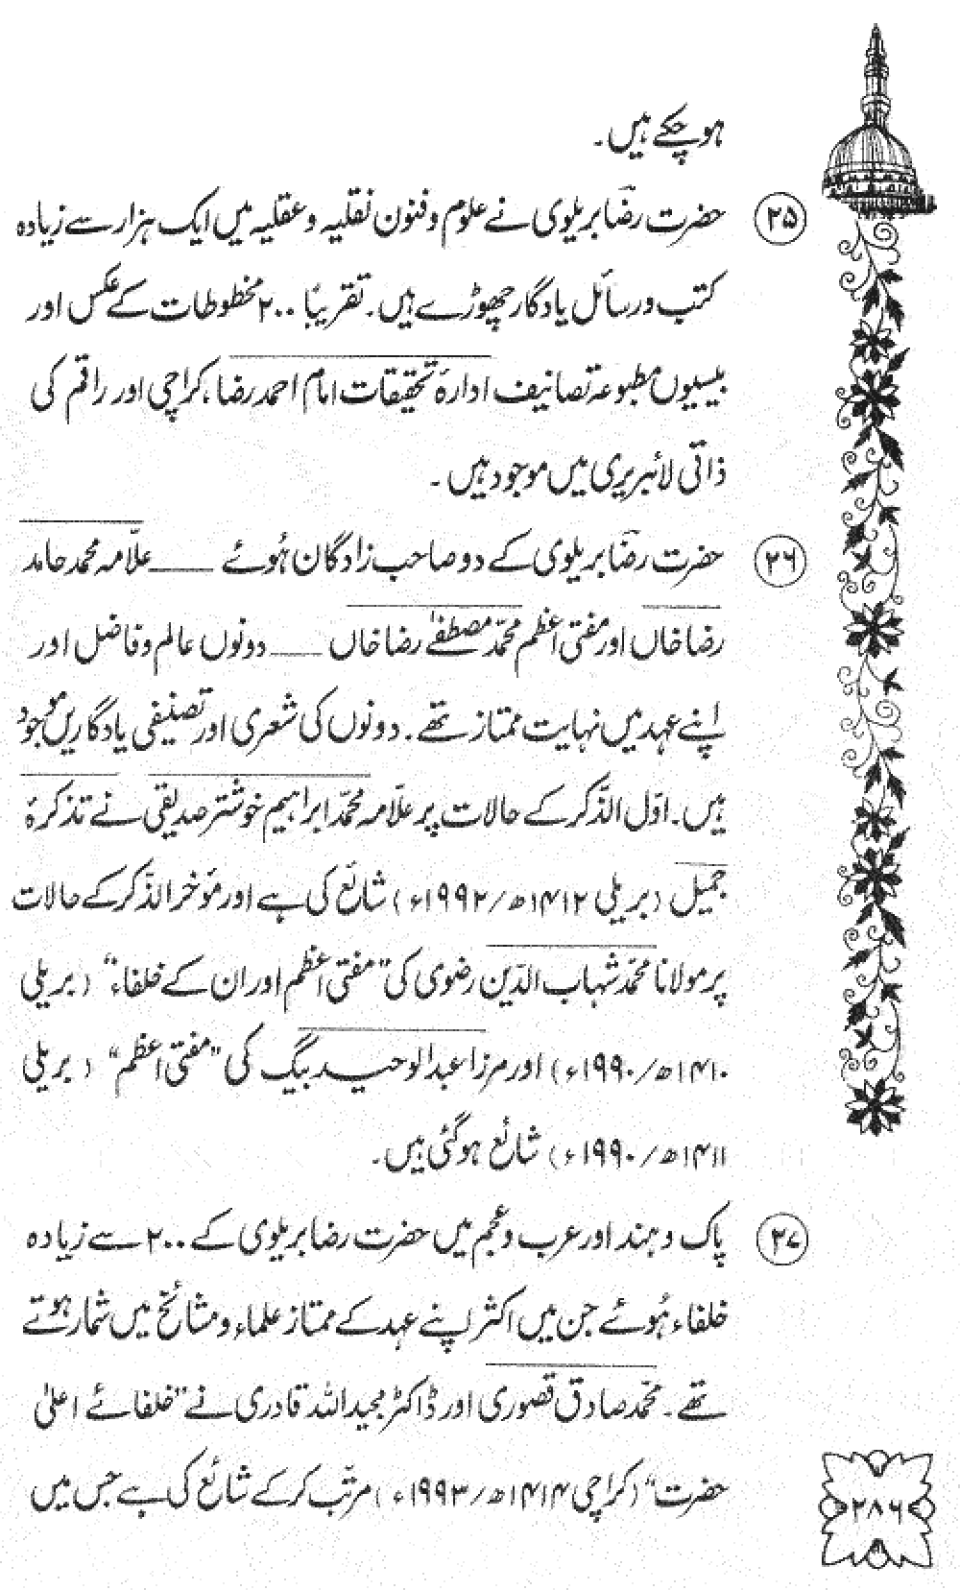 ہو چکے ہیں۔
۲۵ حضرت رضاؔ بریلوی نے علوم و فنون نقلیہ و عقلیہ میں ایک ہزار سے زیادہ
کتب و رسائل یادگار چھوڑے ہیں۔ تقریباً ۲۰۰ مخطوطات کے عکس اور
بیسیوں مطبوعہ تصانیف ادارۂ تحقیقات امام احمد رضا، کراچی اور راقم کی
ذاتی لائبریری میں موجود ہیں۔
۲۶ حضرت رضاؔ بریلوی کے دو صاحب زادگان ہُوئے ـــــ علّامہ محمد حامد
رضا خاں اور مفتی اعظم محمّد مصطفےٰ رضا خاں ـــــ دونوں عالم و فاضل اور
اپنے عہد میں نہایت ممتاز تھے۔ دونوں کی شعری اور تصنیفی یادگاریں موجود
ہیں۔ اوّل الذّکر کے حالات پر علّامہ محمّد ابراہیم خوشتر صدیقی نے تذکرۂ
جمیل (بریلی ۱۴۱۲ھ/۱۹۹۲ء) شائع کی ہے اور مؤخر الذّکر کے حالات
پر مولانا محمّد شہاب الدّین رضوی کی "مفتی اعظم اور ان کے خلفاء" (بریلی
۱۴۱۰ھ/۱۹۹۰ء) اور مرزا عبدالوحید بیگ کی "مفتی اعظم" (بریلی
۱۴۱۱ھ/۱۹۹۰ء) شائع ہو گئی ہیں۔
۲۷ پاک و ہند اور عرب و عجم میں حضرت رضا بریلوی کے ۲۰۰ سے زیادہ
خلفاء ہُوئے جن میں اکثر اپنے عہد کے ممتاز علماء و مشائخ میں شمار ہوتے
تھے۔ محمّد صادق قصوری اور ڈاکٹر مجید اللہ قادری نے "خلفائے اعلیٰ
حضرت" (کراچی ۱۴۱۴ھ/۱۹۹۳ء) مرتّب کر کے شائع کی ہے جس میں
۲۸۶